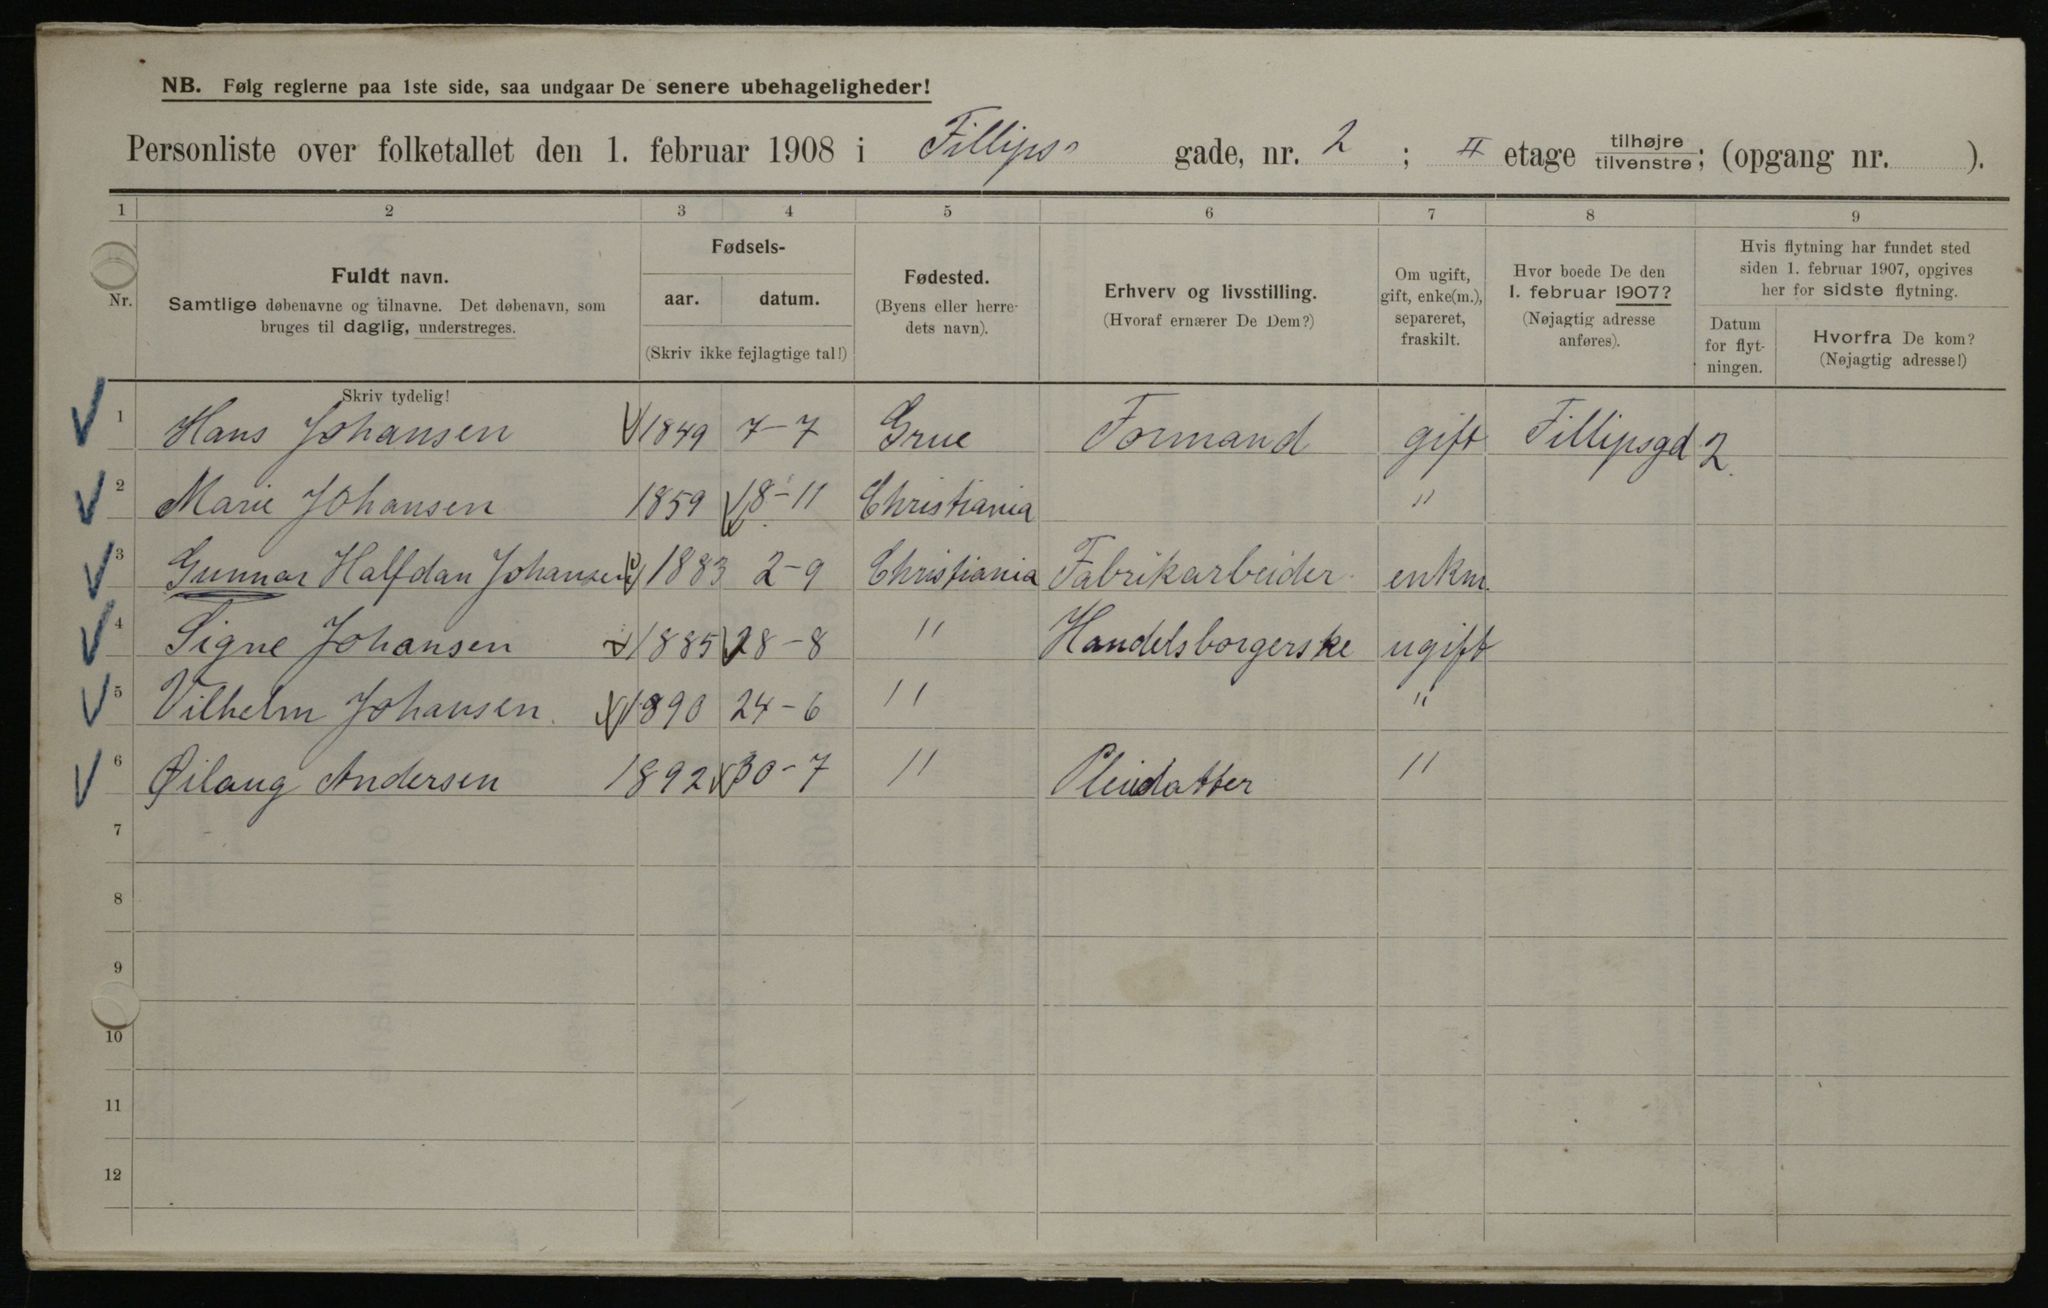 NB. Følg reglerne paa 1ste side, saa undgaar De senere ubehageligheder!
Personliste over folketallet den 1. februar 1908 i Fillips" gade, nr. 2 ; II etage tilhøjre tilvenstre; (opgang nr. ).
1 2 3 4 5 6 7 8 9
Nr.
Fuldt navn.
Samtlige døbenavne og tilnavne. Det døbenavn, som
bruges til daglig, understreges.
Skriv tydelig!
Fødsels-
aar. datum.
(Skriv ikke fejlagtige tal!)
Fødested.
(Byens eller herre-
dets navn).
Erhverv og livsstilling.
(Hvoraf ernærer De Dem?)
Om ugift,
gift, enke(m.),
separeret,
fraskilt.
Hvor boede De den
1. februar 1907?
(Nøjagtig adresse
anføres).
Hvis flytning har fundet sted
siden 1. februar 1907, opgives
her for sidste flytning.
Datum
for flyt-
ningen.
Hvorfra De kom?
(Nøjagtig adresse!)
1 Hans Johansen 1849 7-7 Grue Formand gift Fillipsgd 2
2 Marie Johansen 1859 18-11 Christiania "
3 Gunnar Halfdan Johansen 1883 2-9 Christiania Fabrikarbeider enkm.
4 Signe Johansen 1885 28-8 " Handelsborgerske ugift
5 Vilhelm Johansen. 1890 24-6 " "
6 Øilaug Andersen 1892 30-7 " Pleiedatter "
7
8
9
10
11
12